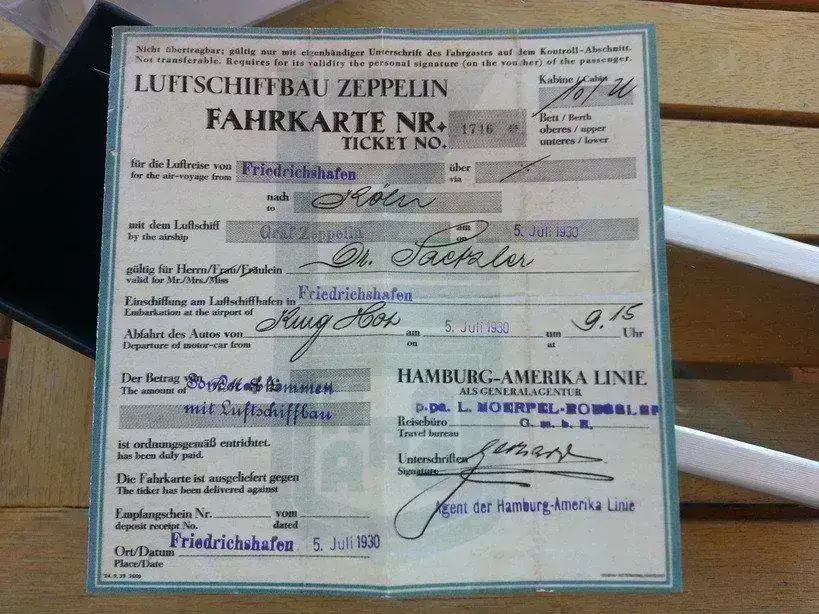 Nicht übertragbar; gültig nur mit eigenhändiger Unterschrift des Fahrgastes auf dem Kontroll-Abschnitt.
Not transferable. Requires for its validity the personal signature (on the voucher) of the passenger.
LUFTSCHIFFBAU ZEPPELIN
Kabine / Cabin
FAHRKARTE NR.
TICKET NO. 1716
Bett / Berth
oberes / upper
unteres / lower
für die Luftreise von Friedrichshafen über
for the air-voyage from via
nach Köln
to
mit dem Luftschiff Graf Zeppelin am 5. Juli 1930
by the airship on
gültig für Herrn/Frau/Fräulein Dr.
valid for Mr./Mrs./Miss
Einschiffung am Luftschiffhafen in Friedrichshafen
Embarkation at the airport of
Abfahrt des Autos von am 5. Juli 1930 um 9.15 Uhr
Departure of motor-car from on at
Der Betrag von
The amount of
mit Luftschiffbau
ist ordnungsgemäß entrichtet.
has been duly paid.
Die Fahrkarte ist ausgeliefert gegen
The ticket has been delivered against
Empfangschein Nr. vom
deposit receipt No. dated
Ort/Datum Friedrichshafen 5. Juli 1930
Place/Date
HAMBURG-AMERIKA LINIE
ALS GENERALAGENTUR
Reisebüro G. m. b. H.
Travel bureau
Unterschriften
Signature
Agent der Hamburg-Amerika Linie